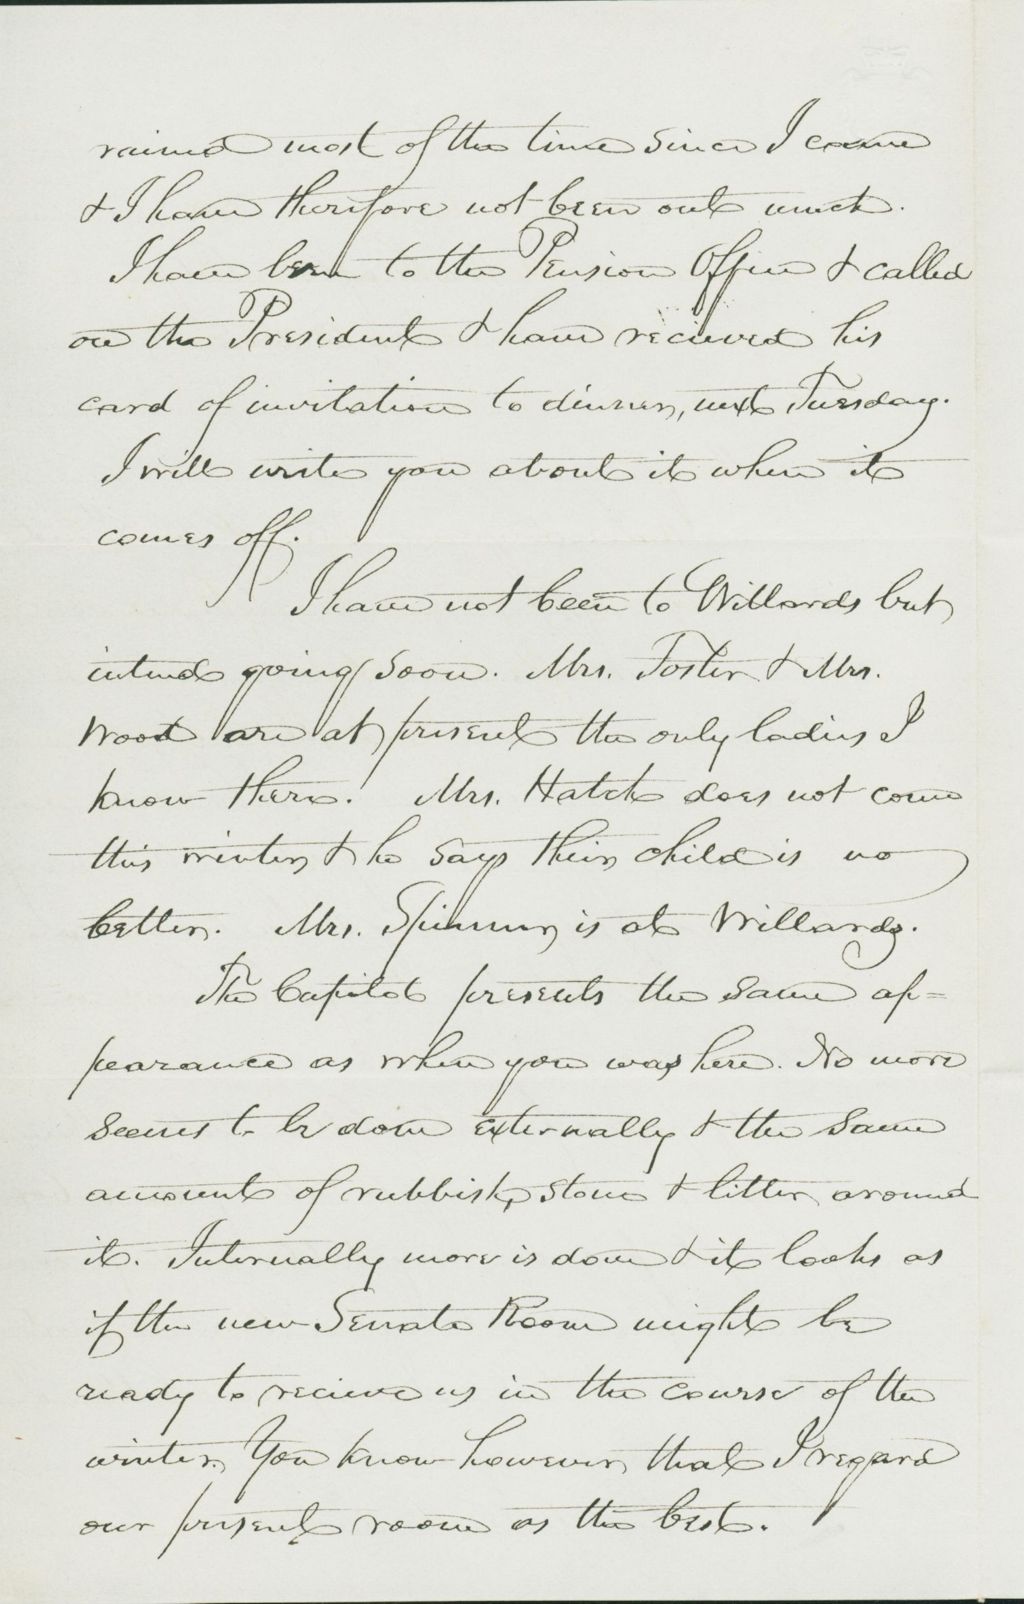 rained most of the time since I came
& I have therefore not been out much.
I have been to the Pension Office & called
on the President & have recieved his
card of invitation to dinner, next Tuesday.
I will write you about it when it
comes off.
I have not been to Willards but
intend going soon. Mrs. Foster & Mrs.
Wood are at present the only ladies I
know there. Mrs. Hatch does not come
this winter, & he says their child is no
better. Mrs. Spinner is at Willards.
The Capitol presents the same ap=
pearance as when you was here. No more
seems to be done externally & the same
amount of rubbish, stone & litter around
it. Internally more is done & it looks as
if the new Senate Room might be
ready to recieve us in the course of the
winter. You know however, that I regard
our present room as the best.